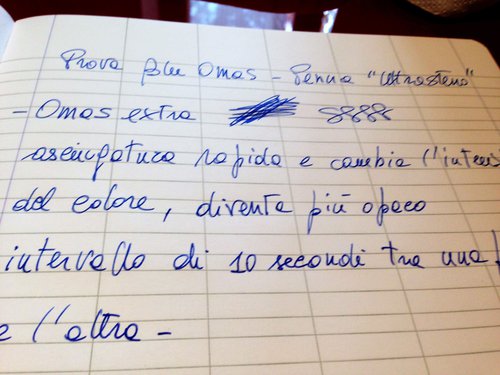 Prova blu Omas - Penna "Ultrasteno"
- Omas extra 8888
asciugatura rapida e cambia l'intens
del colore, diventa più opaco
intervallo di 10 secondi tra una
e l'altra -